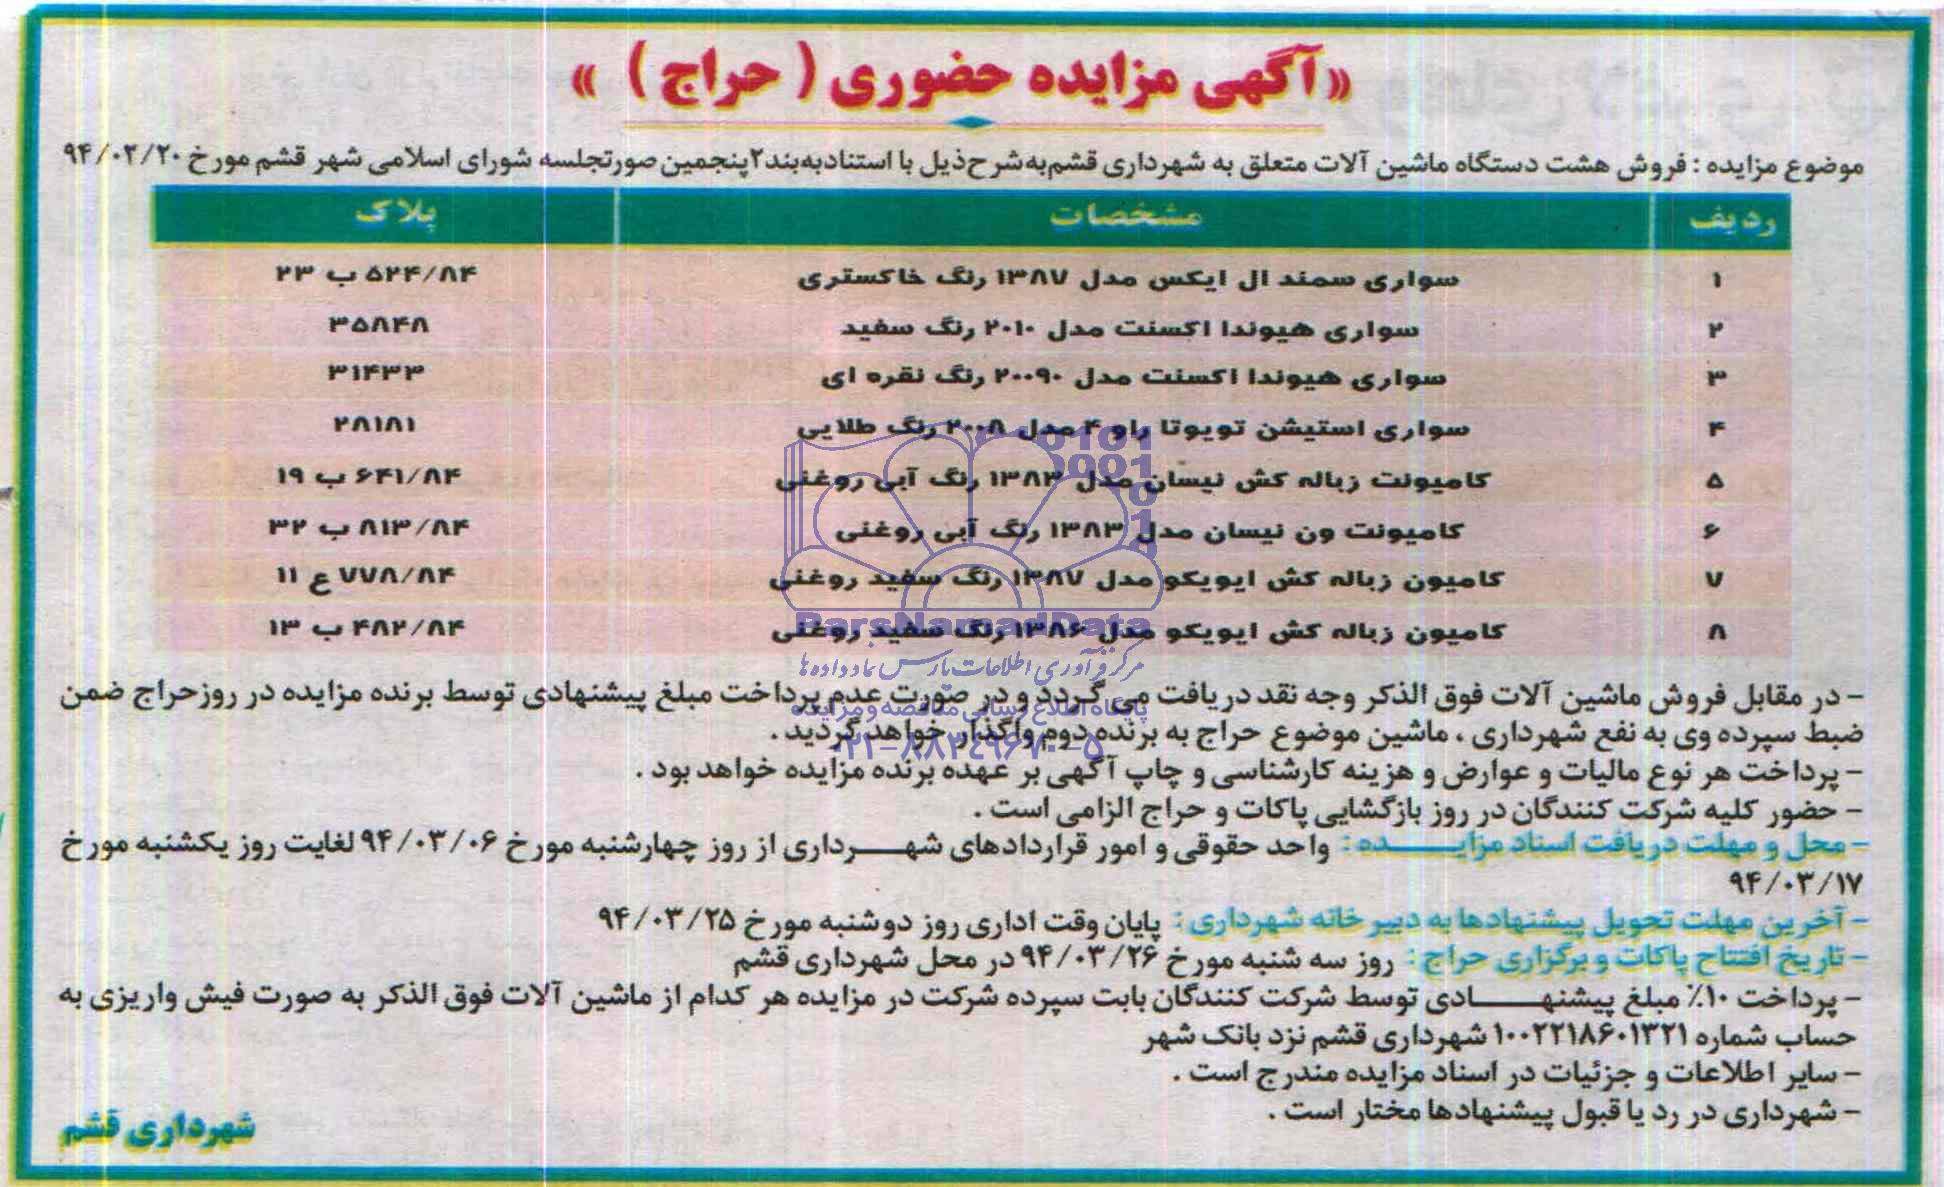 «آگهی مزایده حضوری ( حراج ) »
موضوع مزایده : فروش هشت دستگاه ماشین آلات متعلق به شهرداری قشم به شرح ذیل با استناد به بند ۲ پنجمین صورتجلسه شورای اسلامی شهر قشم مورخ ۹۴/۰۲/۲۰
ردیف مشخصات پلاک
۱ سواری سمند ال ایکس مدل ۱۳۸۷ رنگ خاکستری ۵۲۴/۸۴ ب ۲۳
۲ سواری هیوندا اکسنت مدل ۲۰۱۰ رنگ سفید ۳۵۸۴۸
۳ سواری هیوندا اکسنت مدل ۲۰۰۹۰ رنگ نقره ای ۳۱۴۳۳
۴ سواری استیشن تویوتا راو ۴ مدل ۲۰۰۸ رنگ طلایی ۲۸۱۸۱
۵ کامیونت زباله کش نیسان مدل ۱۳۸۳ رنگ آبی روغنی ۶۴۱/۸۴ ب ۱۹
۶ کامیونت ون نیسان مدل ۱۳۸۳ رنگ آبی روغنی ۸۱۳/۸۴ ب ۳۲
۷ کامیون زباله کش ایویکو مدل ۱۳۸۷ رنگ سفید روغنی ۷۷۸/۸۴ ع ۱۱
۸ کامیون زباله کش ایویکو مدل ۱۳۸۶ رنگ سفید روغنی ۴۸۲/۸۴ ب ۱۳
ParsNamadData
مرکز فرآوری اطلاعات پارس نماد داده ها
پایگاه اطلاع رسانی مناقصه و مزایده
۰۲۱-۸۸۳۴۹۶۷۰-۵
- در مقابل فروش ماشین آلات فوق الذکر وجه نقد دریافت می گردد و در صورت عدم پرداخت مبلغ پیشنهادی توسط برنده مزایده در روز حراج ضمن
ضبط سپرده وی به نفع شهرداری ، ماشین موضوع حراج به برنده دوم واگذار خواهد گردید .
- پرداخت هر نوع مالیات و عوارض و هزینه کارشناسی و چاپ آگهی بر عهده برنده مزایده خواهد بود .
- حضور کلیه شرکت کنندگان در روز بازگشایی پاکات و حراج الزامی است .
- محل و مهلت دریافت اسناد مزایـــده : واحد حقوقی و امور قراردادهای شهـــرداری از روز چهارشنبه مورخ ۹۴/۰۳/۰۶ لغایت روز یکشنبه مورخ
۹۴/۰۳/۱۷
- آخرین مهلت تحویل پیشنهادها به دبیر خانه شهرداری : پایان وقت اداری روز دوشنبه مورخ ۹۴/۰۳/۲۵
- تاریخ افتتاح پاکات و برگزاری حراج : روز سه شنبه مورخ ۹۴/۰۳/۲۶ در محل شهرداری قشم
- پرداخت ۱۰٪ مبلغ پیشنهـــادی توسط شرکت کنندگان بابت سپرده شرکت در مزایده هر کدام از ماشین آلات فوق الذکر به صورت فیش واریزی به
حساب شماره ۱۰۰۲۲۱۸۶۰۱۳۲۱ شهرداری قشم نزد بانک شهر
- سایر اطلاعات و جزئیات در اسناد مزایده مندرج است .
- شهرداری در رد یا قبول پیشنهادها مختار است .
شهرداری قشم